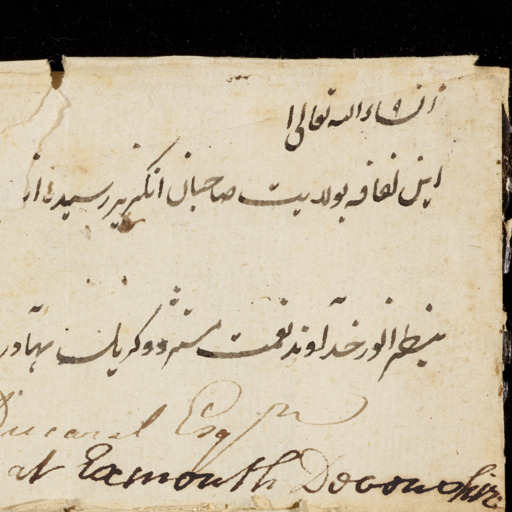 انشاءالله تعالی
این لفافه بولایت صاحبان انگریز رسیده از
بنظر انور خداوند نعمت مستر دوکریل بهادر
Ducarel Esqr
at Exmouth Devonshire